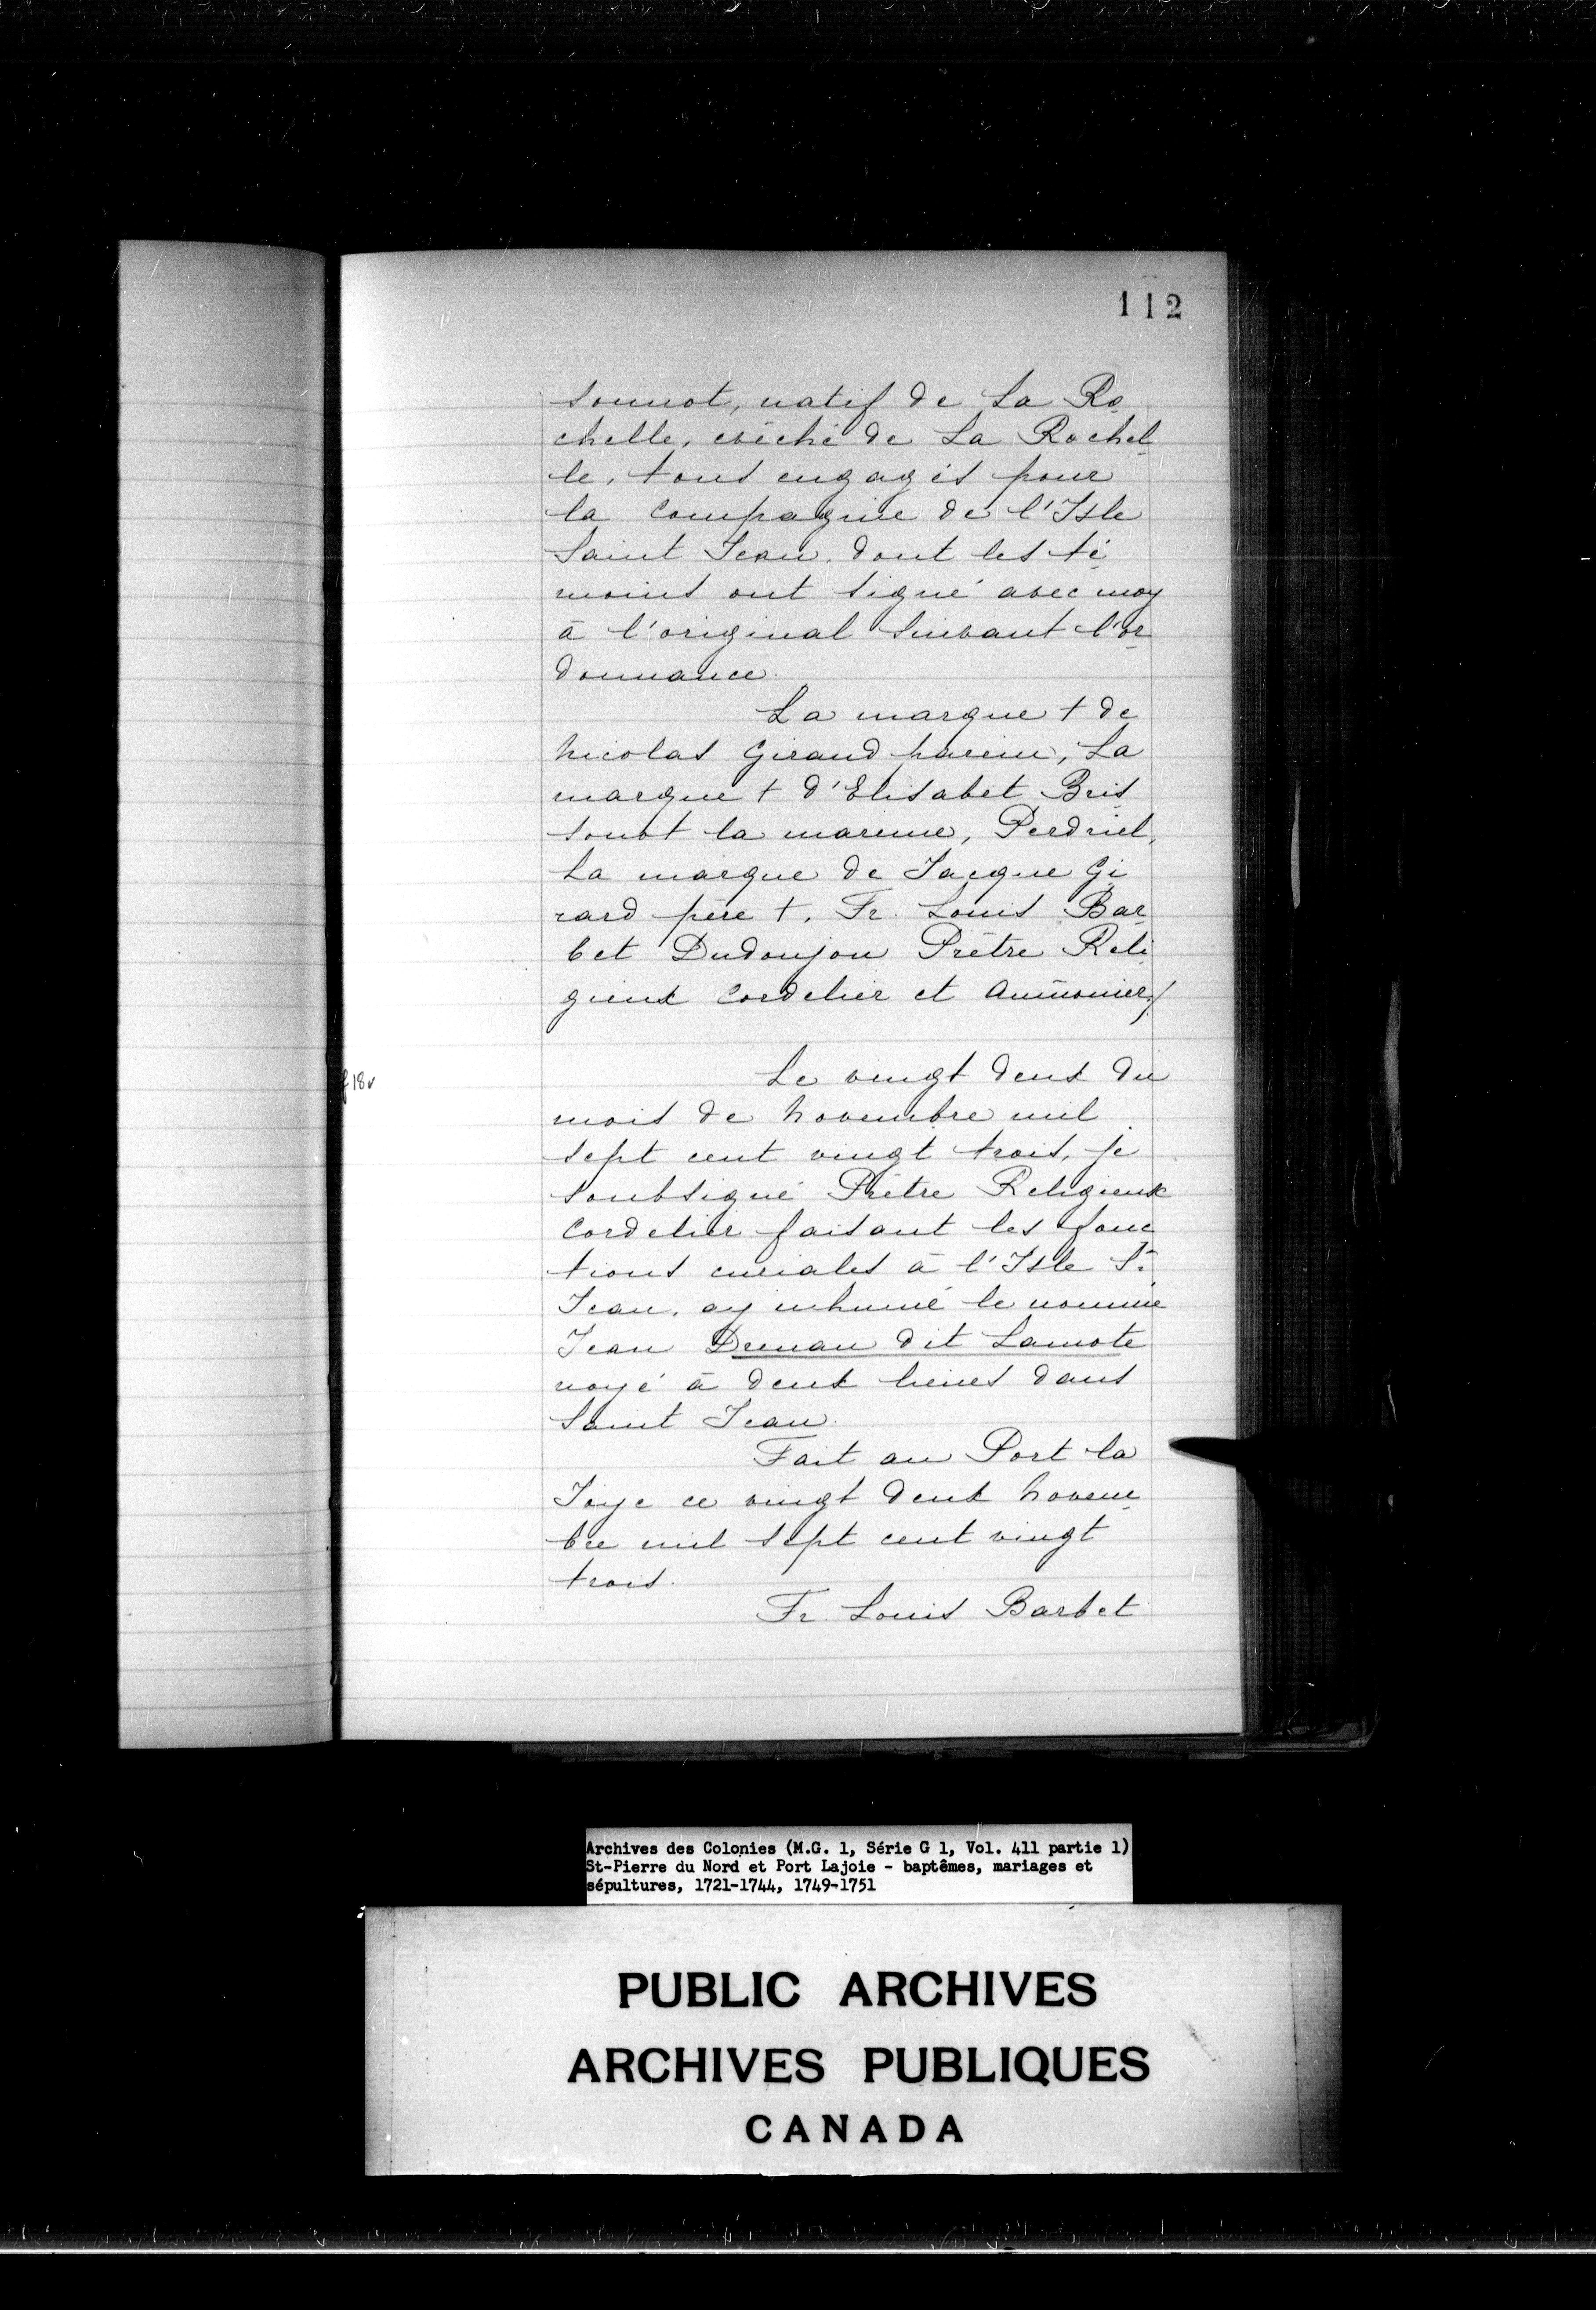 112
sonnot, natif de La Ro
chelle, evêché de La Rochel
le, tous engagés pour
la Compagnie de l'Isle
Saint Jean, dont les té
moins ont signé avec moy
à l'original suivant l'or
donnance.
La marque + de
Nicolas Giraud parein, La
marque + d'Elisabet Bris
sonot la mareine, Perdriel,
La marque de Jacque Gi
rard père +, Fr. Louis Bar
bet Dudonjon Prêtre Reli
gieux Cordelier et Aumônier/
f 18v
Le vingt deux du
mois de Novembre mil
sept cent vingt trois, je
soubsigné Prêtre Religieux
Cordelier faisant les fonc
tions curiales à l'Isle St
Jean, ay inhumé le nommé
Jean Drunau dit Lamote
noyé à deux lieues dans
Saint Jean.
Fait au Port la
Joye ce vingt deux Novem
bre mil sept cent vingt
trois.
Fr. Louis Barbet
Archives des Colonies (M.G. 1, Série G 1, Vol. 411 partie 1)
St-Pierre du Nord et Port Lajoie - baptêmes, mariages et
sépultures, 1721-1744, 1749-1751
PUBLIC ARCHIVES
ARCHIVES PUBLIQUES
CANADA